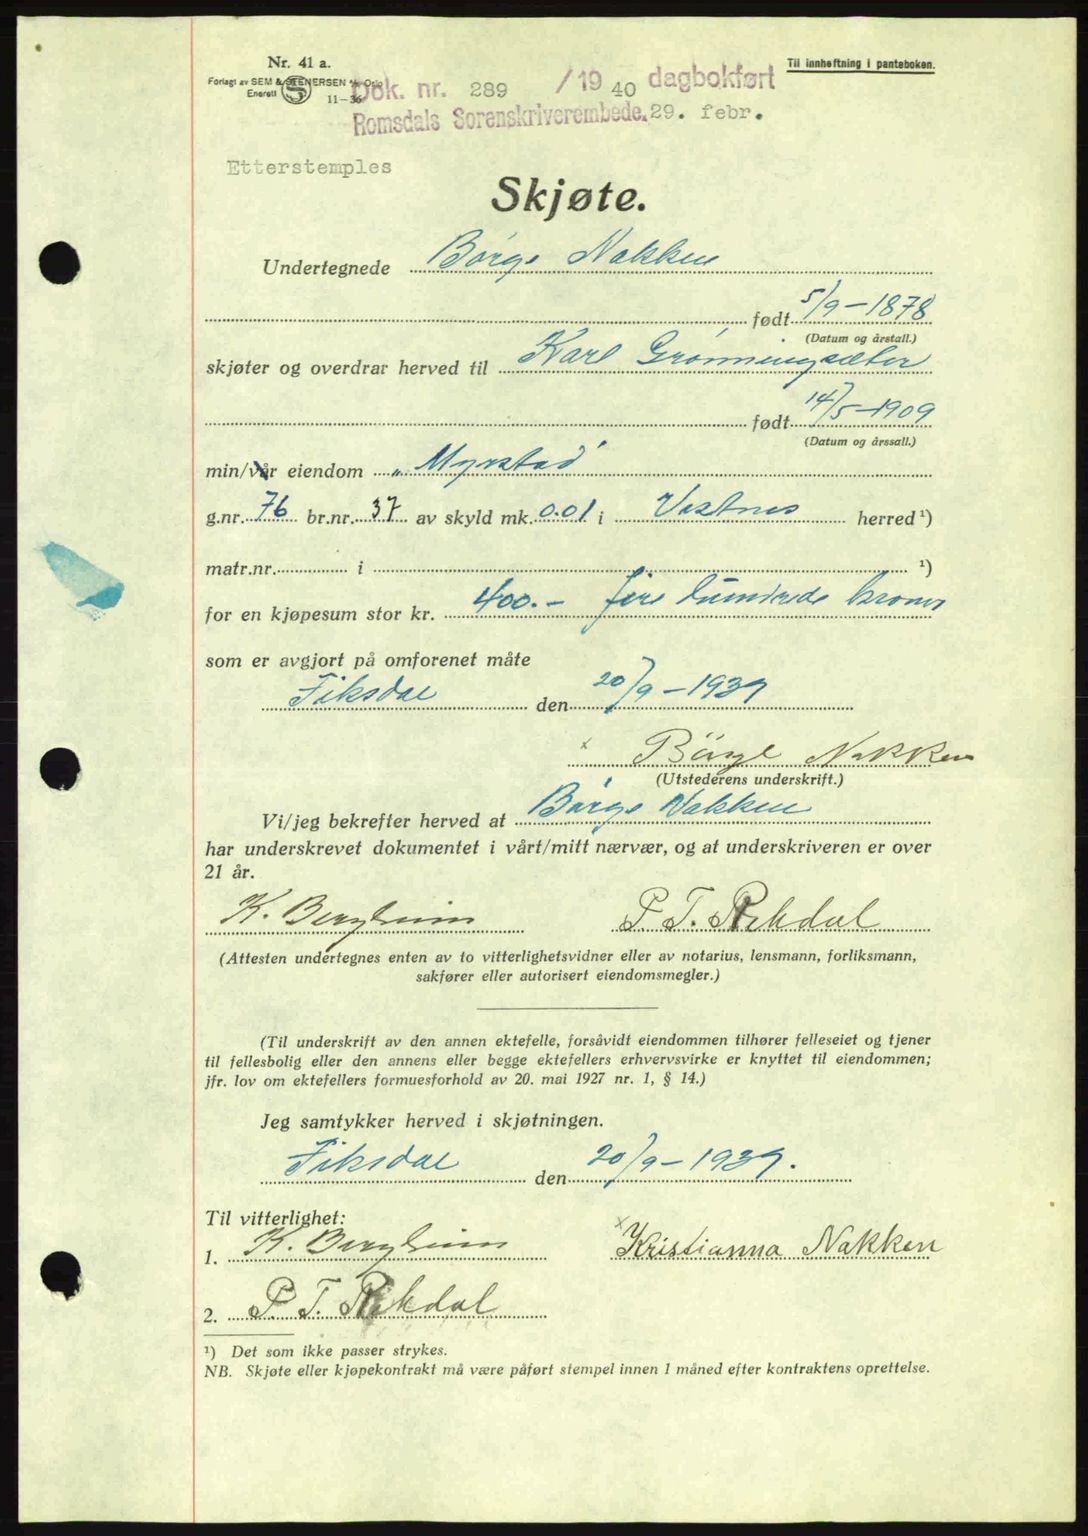 Nr. 41 a.
Til innheftning i panteboken.
Forlagt av SEM & STENERSEN A/S, Oslo
Enerett S 11-36
Dok. nr. 289 /19 40 dagbokført
Romsdals Sorenskriverembede. 29. febr.
Etterstemples
Skjøte.
Undertegnede Børge Nakken
født 5/9-1878
(Datum og årstall.)
skjøter og overdrar herved til Karl Grønningsæter
født 14/5-1909
(Datum og årssall.)
min/vår eiendom "Myrstad"
g.nr. 76 br.nr. 37 av skyld mk. 0.01 i Vestnes herred ¹)
matr.nr. i ¹)
for en kjøpesum stor kr. 400.- fire hundrede kroner
som er avgjort på omforenet måte
Fiksdal den 20/9-1939
x Börge Nakken
(Utstederens underskrift.)
Vi/jeg bekrefter herved at Børge Nakken
har underskrevet dokumentet i vårt/mitt nærvær, og at underskriveren er over
21 år.
K. Bergheim P. T. Rekdal
(Attesten undertegnes enten av to vitterlighetsvidner eller av notarius, lensmann, forliksmann,
sakfører eller autorisert eiendomsmegler.)
(Til underskrift av den annen ektefelle, forsåvidt eiendommen tilhører felleseiet og tjener
til fellesbolig eller den annens eller begge ektefellers erhvervsvirke er knyttet til eiendommen;
jfr. lov om ektefellers formuesforhold av 20. mai 1927 nr. 1, § 14.)
Jeg samtykker herved i skjøtningen.
Fiksdal den 20/9-1939.
Til vitterlighet:
1. K. Bergheim x Kristianna Nakken
2. P. T. Rekdal
¹) Det som ikke passer strykes.
NB. Skjøte eller kjøpekontrakt må være påført stempel innen 1 måned efter kontraktens oprettelse.